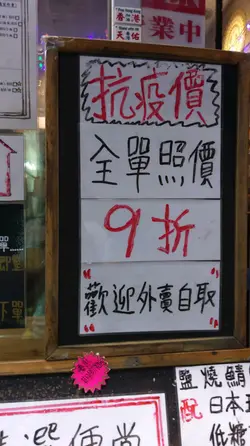 天佑
業中
抗疫價
全單照價
9折
歡迎外賣自取
鹽燒鯖
配日本
低糖